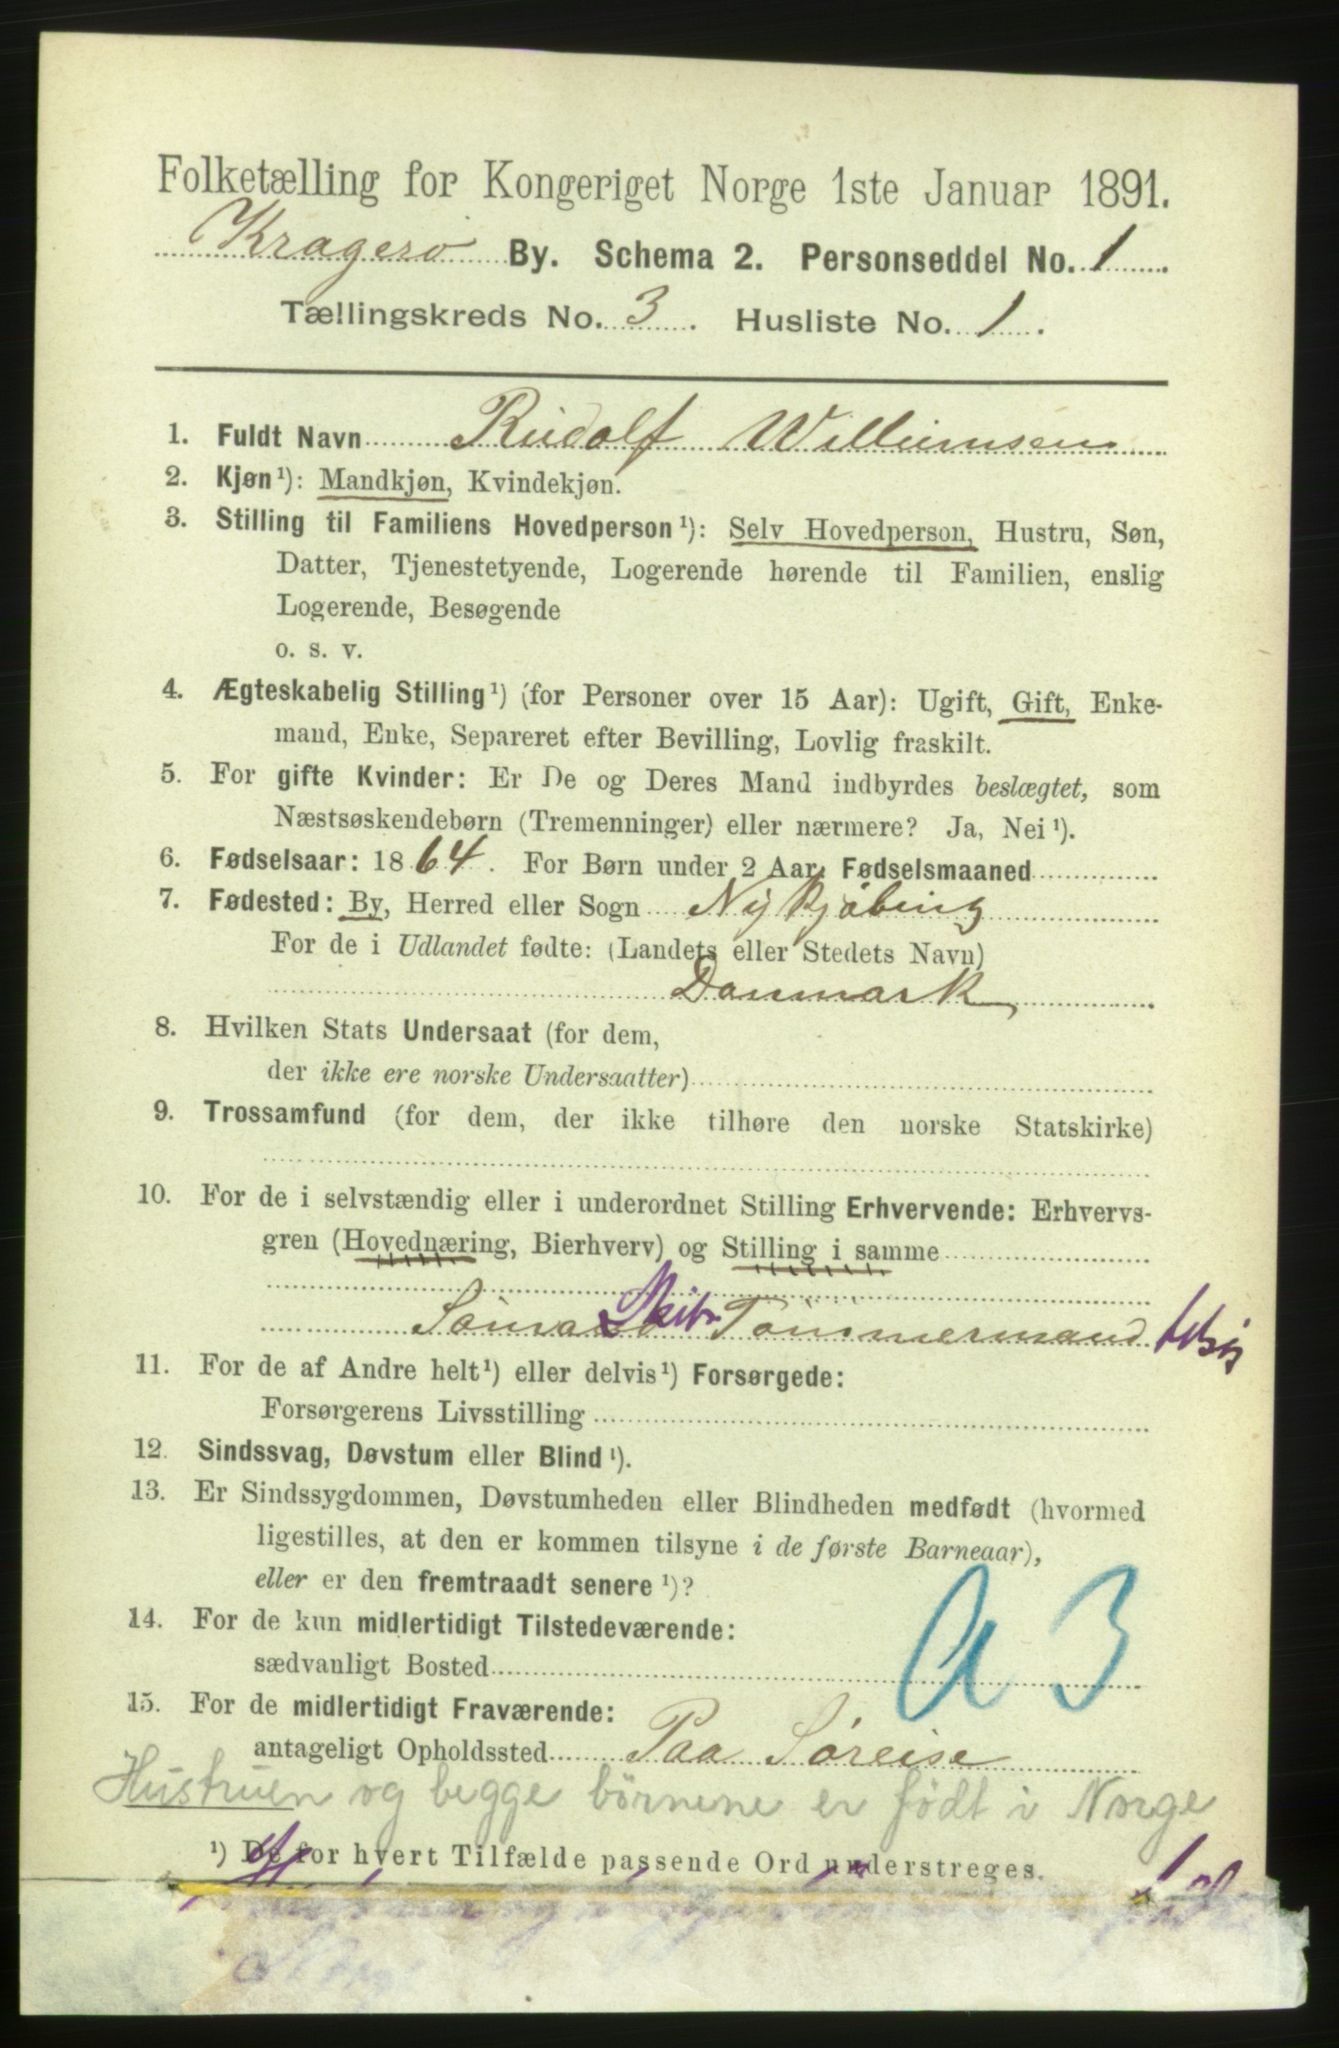 Folketælling for Kongeriget Norge 1ste Januar 1891.
Kragerø By. Schema 2. Personseddel No. 1.
Tællingskreds No. 3. Husliste No. 1.
1. Fuldt Navn Rudolf Willumsen
2. Kjøn ¹): Mandkjøn, Kvindekjøn.
3. Stilling til Familiens Hovedperson ¹): Selv Hovedperson, Hustru, Søn,
Datter, Tjenestetyende, Logerende hørende til Familien, enslig
Logerende, Besøgende
o. s. v.
4. Ægteskabelig Stilling ¹) (for Personer over 15 Aar): Ugift, Gift, Enke-
mand, Enke, Separeret efter Bevilling, Lovlig fraskilt.
5. For gifte Kvinder: Er De og Deres Mand indbyrdes beslægtet, som
Næstsøskendebørn (Tremenninger) eller nærmere? Ja, Nei ¹).
6. Fødselsaar: 1864. For Børn under 2 Aar: Fødselsmaaned
7. Fødested: By, Herred eller Sogn Nykjøbing
For de i Udlandet fødte: (Landets eller Stedets Navn)
Danmark
8. Hvilken Stats Undersaat (for dem,
der ikke ere norske Undersaatter)
9. Trossamfund (for dem, der ikke tilhøre den norske Statskirke)
10. For de i selvstændig eller i underordnet Stilling Erhvervende: Erhvervs-
gren (Hovednæring, Bierhverv) og Stilling i samme
Tømmermand
11. For de af Andre helt ¹) eller delvis ¹) Forsørgede:
Forsørgerens Livsstilling
12. Sindssvag, Døvstum eller Blind ¹).
13. Er Sindssygdommen, Døvstumheden eller Blindheden medfødt (hvormed
ligestilles, at den er kommen tilsyne i de første Barneaar),
eller er den fremtraadt senere ¹)?
14. For de kun midlertidigt Tilstedeværende:
sædvanligt Bosted
a 3
15. For de midlertidigt Fraværende:
antageligt Opholdssted Paa Søreise
Hustruen og begge børnene er født i Norge
¹) De for hvert Tilfælde passende Ord understreges.